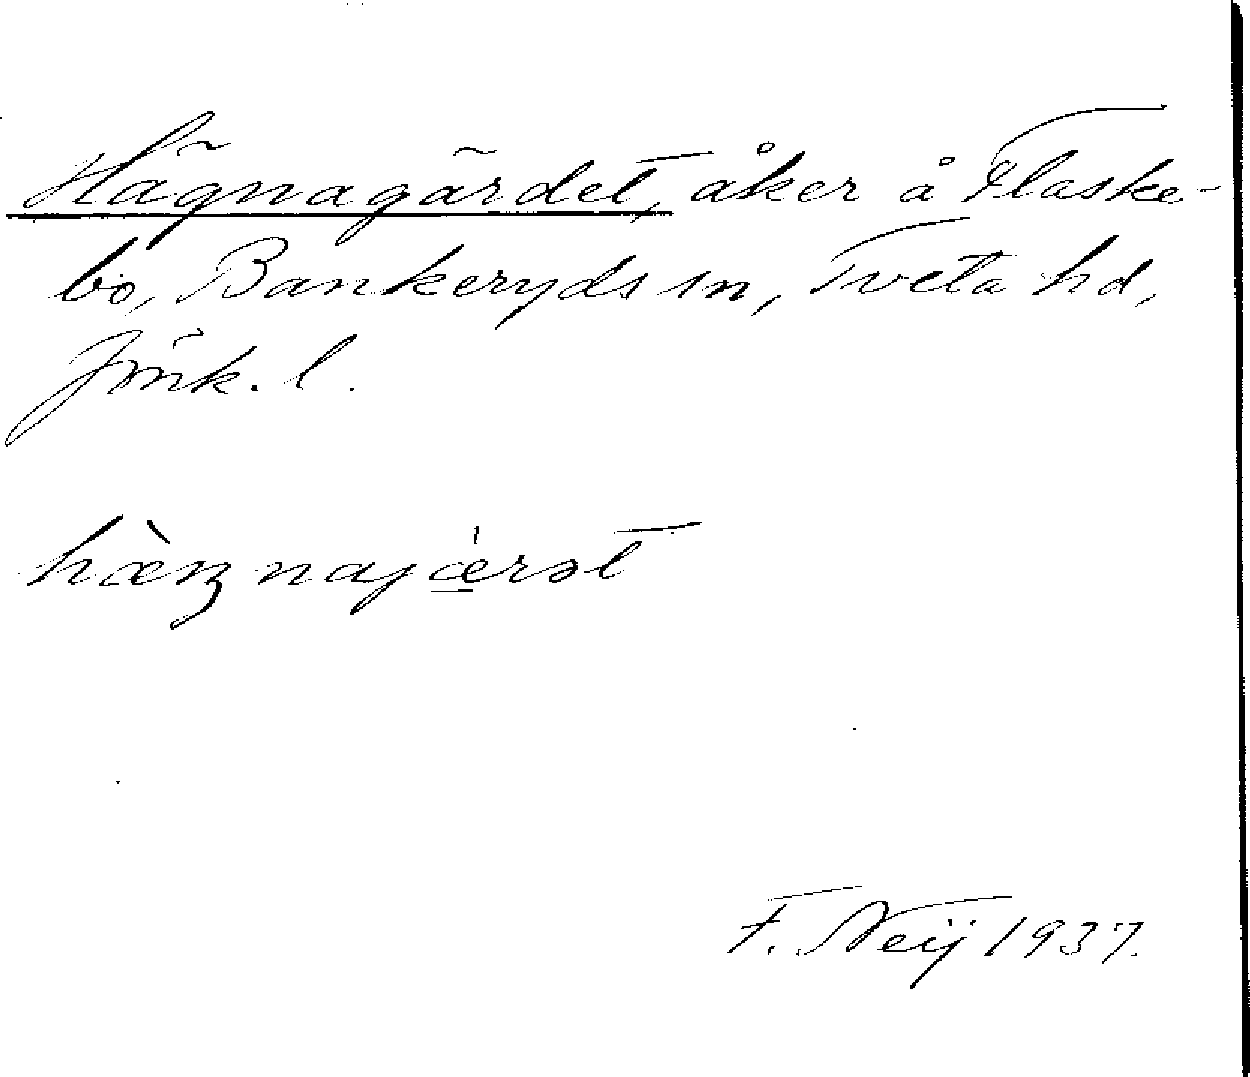 Hägnagärdet, åker å Flaske-
bo, Bankeryds sn, Tveta hd,
Jönk. l.
hæ̀ŋnajæ̣rət
F. Neij 1937.